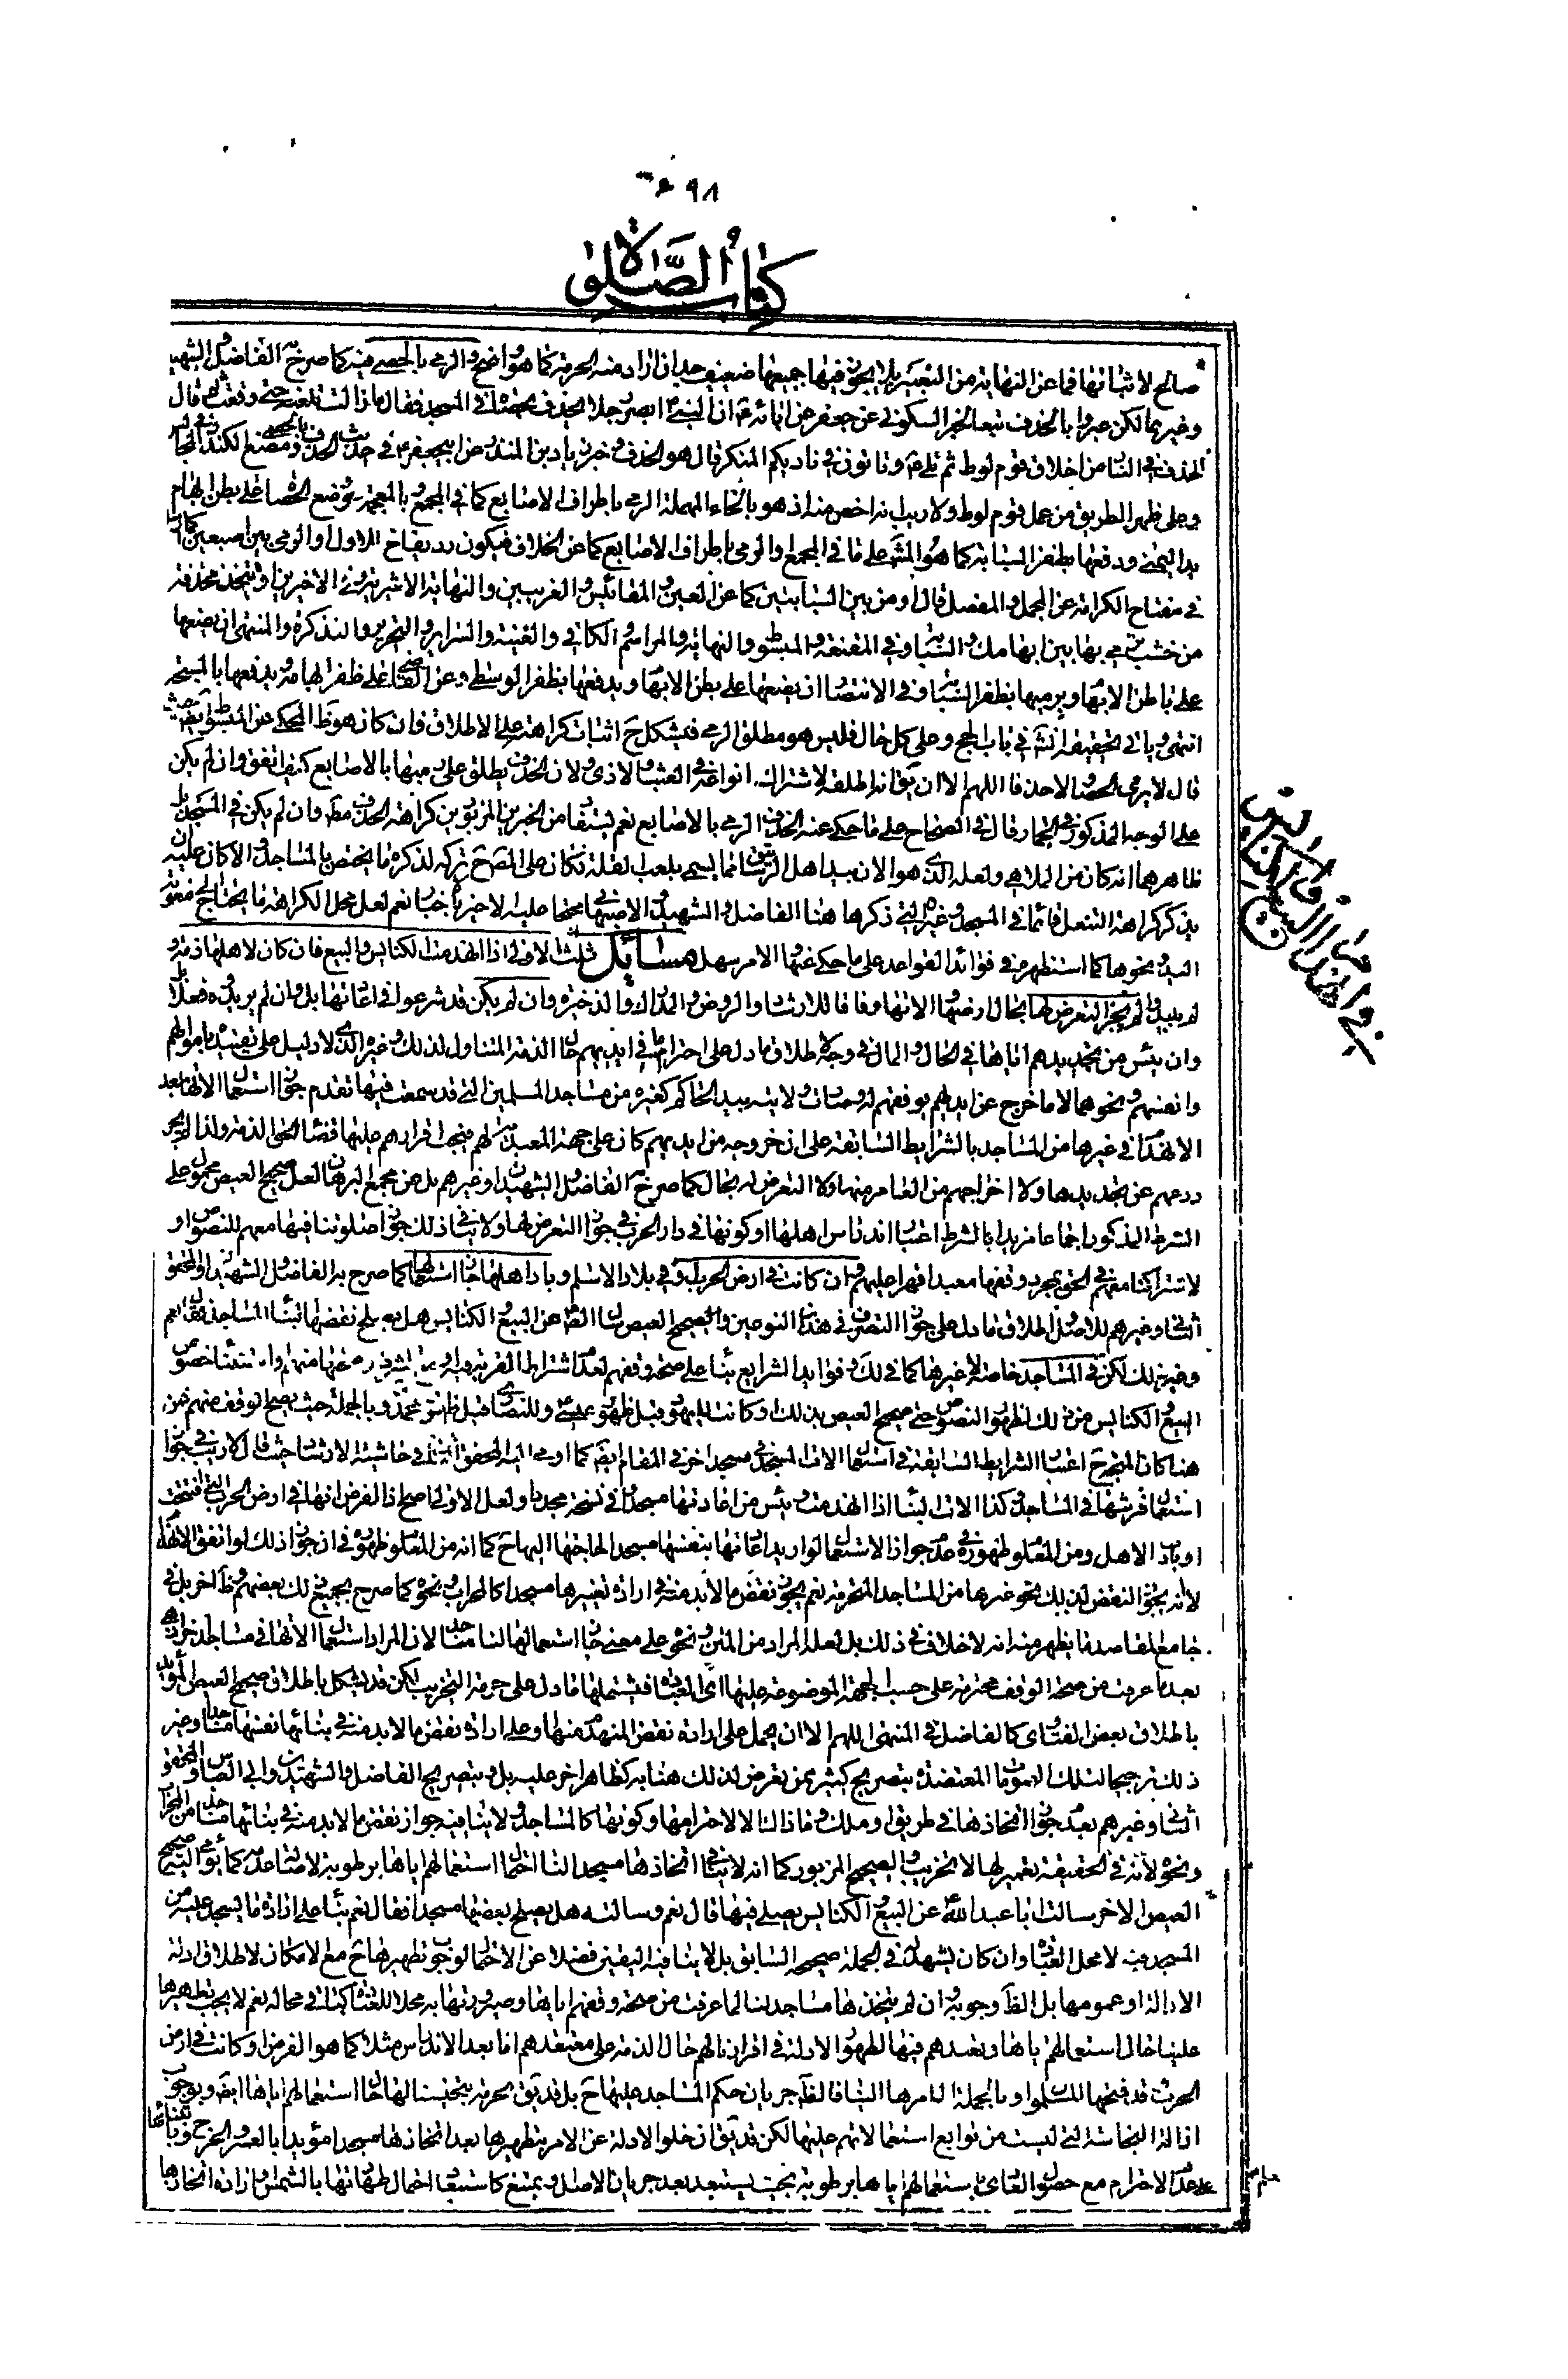 ٩٨
كتاب الصلوة
صالح لاثباتها فما عن النهاية من التعبير بلا يجوز فيها جميعها ضعيف جدا ان اراد منه الحرمة كما هو واضح والرمي بالحصى فيه كما صرح به الفاضل والشهيد
وغيرهما لكن عبروا بالخذف تبعا لخبر السكوني عن جعفر عن ابائه ع ان النبي ص ابصر رجلا يخذف بحصاة في المسجد فقال ما زالت تلعنه حتى وقعت ثم قال
الخذف في النادي من اخلاق قوم لوط ثم تلى ع وتأتون في ناديكم المنكر قال هو الخذف وخبر زياد بن المنذر عن ابي جعفر ع في حديث الخذف بالحصى ومضغ الكندر في المجالس
وعلى ظهر الطريق من عمل قوم لوط ولا ريب انه اخص منه اذ هو بالخاء المهملة الرمي باطراف الاصابع كما في المجمع وبالمعجمة وضع الحصاة على بطن ابهام
يد اليمنى ودفعها بظفر السبابة كما هو المشهور على ما في المجمع والرمي باطراف الاصابع كما عن الخلاف فيكون رد
في مفتاح الكرامة عن المجمل والمفصل قال او من بين السبابتين كما عن العين والمقائيس والغريبين والنهاية الاثيرية وفي الاخيرين او تتخذ مخذفة
من خشب ترمي بها بين ابهامك والسبابة وفي المقنعة والمبسوط والنهاية والمراسم والكافي والغنية والسرائر والتحرير والتذكرة والمنتهى ان يضعها
على باطن الابهام ويرميها بظفر السبابة وفي الانتصار ان يضعها على بطن الابهام ويدفعها بظفر الوسطى وعن القاضي على ظفر ابهامه ويدفعها بالمسبحة
انتهى وياتي تحقيقه ان شاء في باب الحج وعلى كل حال فليس هو مطلق الرمي فيشكل ح اثبات كراهته على الاطلاق وان كان هو ظ المحكي عن المبسوط ايضا حيث
قال لا يرمى الحصا لا حذفا اللهم الا ان يقال انه اطلقه لاشتراك انواعه في العبث والاذى ولان الخذف يطلق على رميها بالاصابع كيف اتفق وان لم يكن
على الوجه المذكور في الجمار قال في الصحاح على ما حكي عنه الخذف الرمي بالاصابع نعم يستفاد من الخبرين المزبورين كراهة الخذف مط وان لم يكن في المسجد بل
ظاهرهما انه كان من الملاهي ولعله الذي هو الان بيد اهل الرساتيق
يذكر كراهة التنعل قائما في المسجد وغيره التي ذكرها هنا الفاضل والشهيد والاصبهاني محتجا عليه لاخير باخبار نعم لعل محل الكراهة ما يحتاج فعله
اليد ونحوها كما استظهره في فوائد القواعد على ما حكي عنها والامر سهل مسائل ثلث الاولى اذا انهدمت الكنايس والبيع فان كان لاهلها ذمة و
لم يبيدوا لم يجز التعرض لها بحال ارضها والاتها وفاقا للارشاد والروض والمدارك والذخيرة وان لم يكن قد شرعوا في اعادتها بل وان لم يريدوه فعلا بل
وان يئس من تجديدهم اياها في الحال والمال
وانفسهم ونحوهما الا ما خرج عن ايديهم بوقفهم له وصارت ولايته بيد الحاكم كغيره من مساجد المسلمين التي قد سمعت فيها تقدم جواز استعمال الاتها بعد
الانهدام في غيرها من المساجد بالشرايط السابقة على ان خروجه من ايديهم كان على جهة المعبدية لهم فيجب اقرارهم عليها قضاء لحق الذمة ولذا لم يجز
ردعهم عن تجديدها ولا اخراجهم من الغامر منها ولا التعرض له بحال كما صرح به الفاضل والشهيدان وغيرهم بل عن مجمع البرهان لعل صحيح العيص محمول على
الشرط المذكور اجماعا مريدا بالشرط اعتبار اندراس اهلها او كونها في دار الحرب في جواز التعرض لها ولا ينافي ذلك جواز صلوتنا فيها معهم للنصوص او
لاشتراكنا معهم في الحق بمجرد وقفها معبدا قهرا عليهم وان كانت في ارض الحرب او في بلاد الاسلام وباد اهلها جاز استعمالها كما صرح به الفاضل والشهيدان والمحقق
الثاني وغيرهم للاصل واطلاق ما دل على جواز التصرف في هذين النوعين والصحيح العيص سال الصادق عن البيع والكنايس هل يصلح نقضها لبناء المساجد فقال نعم
وغير ذلك لكن في المساجد خاصة لا غيرها كما في لك وفوايد الشرايع بناء على صحة وقفهم لعدم اشتراط القربة
البيع والكنايس من ذلك لظهور النصوص حتى صحيح العيص بذلك او كانت لليهود قبل ظهور عيسى وللنصارى قبل ظهور نبينا محمد ص وبالجملة حيث يصح الوقف منهم فمن
هنا كان المتجه ح اعتبار الشرايط السابقة في استعمال الات المسجد في مسجد اخر في المقام ايضا كما اومى اليه المحقق الثاني في حاشية الارشاد حيث قال لا ريب في جواز
استعمال فرشها في المساجد وكذا الات البناء اذا انهدمت ويئس من اعادتها مسجدا وفي نسخة مجددا ولعل الاولى اصح اذا لفرض انها في ارض الحرب التي فتحت
او باد الاهل ومن المعلوم ظهوره في عدم جواز الاستعمال لو اريد اعادتها بنفسها مسجدا لحاجتها اليها ح كما انه من المعلوم ظهوره في ان جواز ذلك لو اتفق الانهدام
لا انه يجوز النقض لذلك نحو غيرها من المساجد المحترمة نعم يجوز نقض ما لا بد منه في ارادة تغييرها مسجدا كالمحراب ونحوه كما صرح بجميع ذلك بعضهم وظ اخر بل في
جامع المقاصد ما يظهر منه انه لا خلاف في ذلك بل لعله المراد من المتن ونحوه على معنى جاز استعمالها لنا مساجد لا ان المراد استعمال الاتها في مساجد اخر اذ هي
بعد ما عرفت من صحة الوقف محترمة على حسب الجهة الموضوعة عليها اي العبادة فيشملها ما دل على حرمة التخريب لكن قد يشكل باطلاق صحيح العيص المؤيد
باطلاق بعض الفتاوى كالفاضل في المنتهى اللهم الا ان يحمل على ارادة نقض المنهدم منها وعلى ارادة نقض ما لا بد منه في بنائها نفسها مساجد وغير
ذلك ترجيحا لتلك العمومات المعتضدة بتصريح كثير ممن تعرض لذلك هنا به كظاهر اخر عليه بل وبتصريح الفاضل والشهيدين وابي العباس والمحقق
الثاني وغيرهم بعدم جواز اتخاذها في طريق او ملك وما ذاك الا لاحترامها وكونها كالمساجد ولا ينافيه جواز نقض ما لا بد منه في بنائها مساجد من المحراب
ونحوه لانه في الحقيقة تعمير لها لا تخريب والصحيح المزبور كما انه لا ينافي اتخاذها مسجدا لنا احتمال استعمالهم اياها برطوبة لاصالة عدمه كما يومي اليه صحيح
العيص الاخر سالت ابا عبد الله ع عن البيع والكنايس يصلى فيها قال نعم وسالته هل يصلح بعضها مسجدا فقال نعم بناء على ارادة ما يسجد عليه من
المسجد فيه لا محل العبادة وان كان يشهد له في الجملة صحيحه السابق بل لا ينافيه اليقين فضلا عن الاحتمال لوجوب تطهيرها ح مع الامكان لاطلاق ادلة
الازالة او عمومها بل الظ وجوبه وان لم يتخذها مساجد لنا لما عرفت من صحة وقفهم اياها وصيرورتها به محلا للعبادة كباقي محاله نعم لا يجب تطهيرها
علينا حال استعمالهم اياها وتعبدهم فيها لظهور الادلة في اقرارنا لهم حال الذمة على معتقدهم اما بعد الاندراس مثلا كما هو الفرض او كانت في ارض
الحرب وقد فتحها المسلمون وبالجملة الامر لها الينا فالظ جريان حكم المساجد عليها ح بل قد يقال بحرمة تنجيسنا لها حال استعمالهم اياها ايضا وبوجوب
ازالة النجاسة التي ليست من توابع استعمالاتهم عليها لكن قد يقال ان خلو الادلة عن الامر بتطهيرها بعد اتخاذها مسجدا مؤيدا بالعسر والحرج وبابتنائها
على عدم الاحترام مع حصول العلم العادي باستعمالهم اياها برطوبة بحيث يستبعد بعد جريان الاصل ويمتنع كاستبعاد احتمال طهارتها بالشمس وارادة اتخاذها